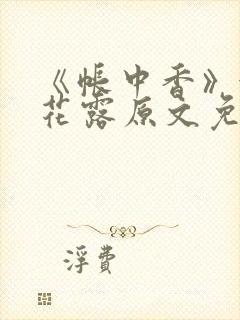 《帐中香》
花露原文免
浮费